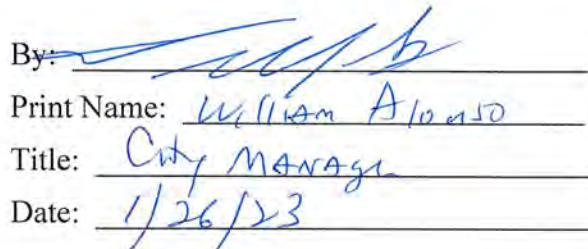 By:
Print Name: William Alonso
Title: City Manager
Date: 1/26/23